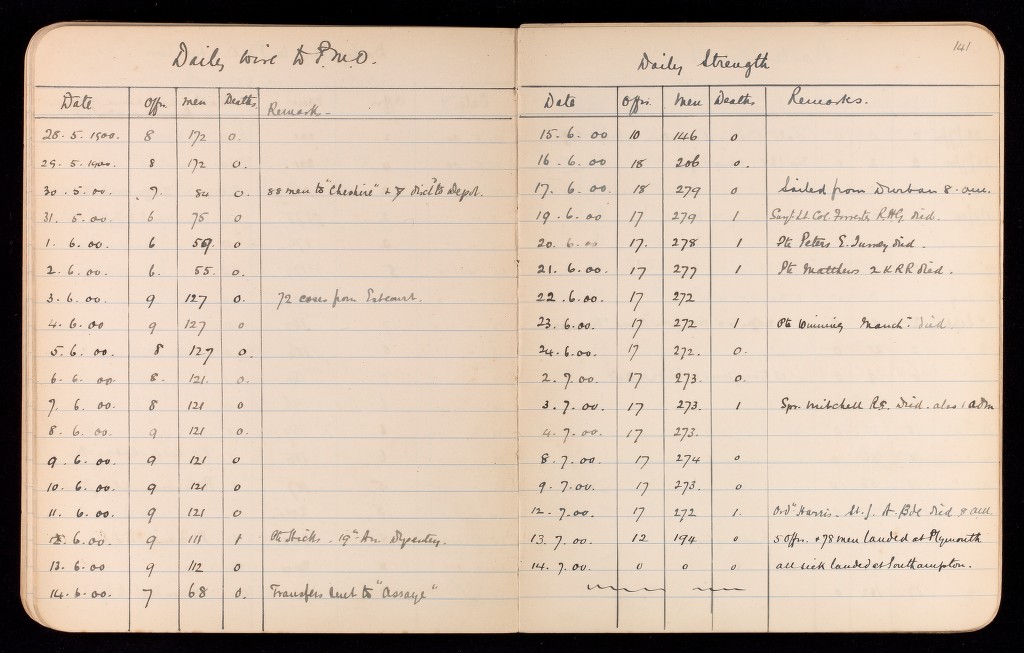 141
Daily wire to P.M.O.
Date Offrs. men Deaths. Remark -
28. 5. 1900. 8 172 0.
29. 5. 1900. 8 172 0.
30. 5. 00. 7. 84 0. 88 men to "Cheshire" & disch'd to Depot.
31. 5. 00. 6 75 0
1. 6. 00. 6 0
2. 6. 00. 6. 55. 0.
3. 6. 00. 9 127 0. 72 cases from Estcourt.
4. 6. 00 9 127 0
5. 6. 00. 8 127 0.
6. 6. 00. 8. 121. 0.
7. 6. 00. 8 121 0
8. 6. 00. 9 121 0.
9. 6. 00. 9 121 0
10. 6. 00. 9 121 0
11. 6. 00. 9 121 0
12. 6. 00. 9 111 1 Pte Hicks. 19th Hrs Dysentery.
13. 6. 00 9 112 0
14. 6. 00. 7 68 0. Transfers sent to "Assaye"
Daily Strength
Date Offrs. Men Deaths Remarks.
15. 6. 00 10 146 0
16. 6. 00 18 206 0.
17. 6. 00. 18 279 0 Sailed from Durban 8. a.m.
19. 6. 00 17 279 1 Lt. Col. Forrester R.H.G. died.
20. 6. 00 17. 278 1 Pte Peters E. Surrey died.
21. 6. 00. 17 277 1 Pte Matthews 2 K.R.R died.
22. 6. 00. 17 272
23. 6. 00. 17 272 1 Pte Winning Manch: died.
24. 6. 00. 17 272. 0.
2. 7. 00. 17 273. 0.
3. 7. 00. 17 273. 1 Spr. Mitchell R.E. Died. also 1 adm
4. 7. 00. 17 273.
8. 7. 00. 17 274 0
9. 7. 00. 17 273. 0
12. 7. 00. 17 272 1. Ordly Harris. St. J. A. Bde died 8 a.m.
13. 7. 00. 12 194 0 5 offrs. & 78 men landed at Plymouth
14. 7. 00. 0 0 0 all sick landed at Southampton.